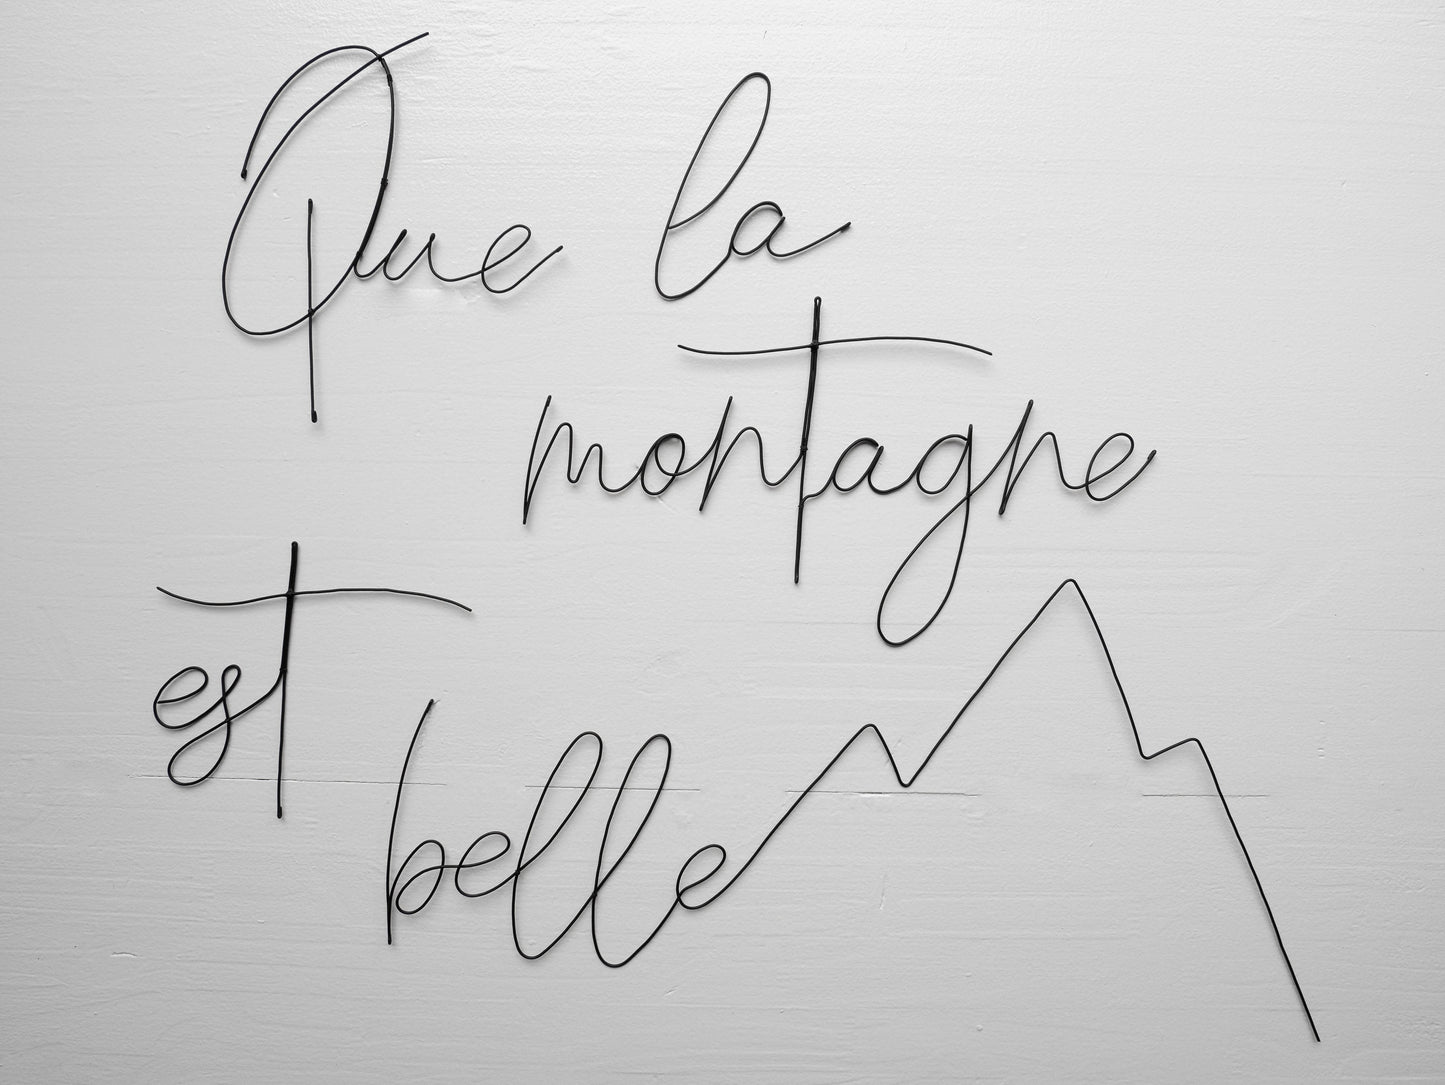 Que la
montagne
est
belle